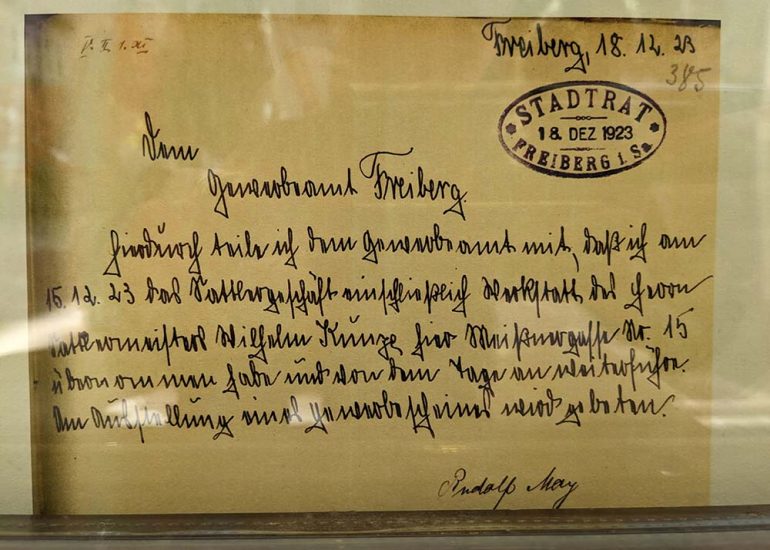 Freiberg, 18.12.23
385
STADTRAT
18. DEZ 1923
FREIBERG i. Sa.
Dem
Gewerbeamt Freiberg.
Hierdurch teile ich dem Gewerbeamt mit, daß ich am
15.12.23 das Sattlergeschäft einschließlich Werkstatt des Herrn
Sattlermeisters Wilhelm Kunze, hier Meißnergasse Nr. 15
übernommen habe und von dem Tage an weiterführe.
Um Ausstellung eines Gewerbescheines wird gebeten.
Rudolf May